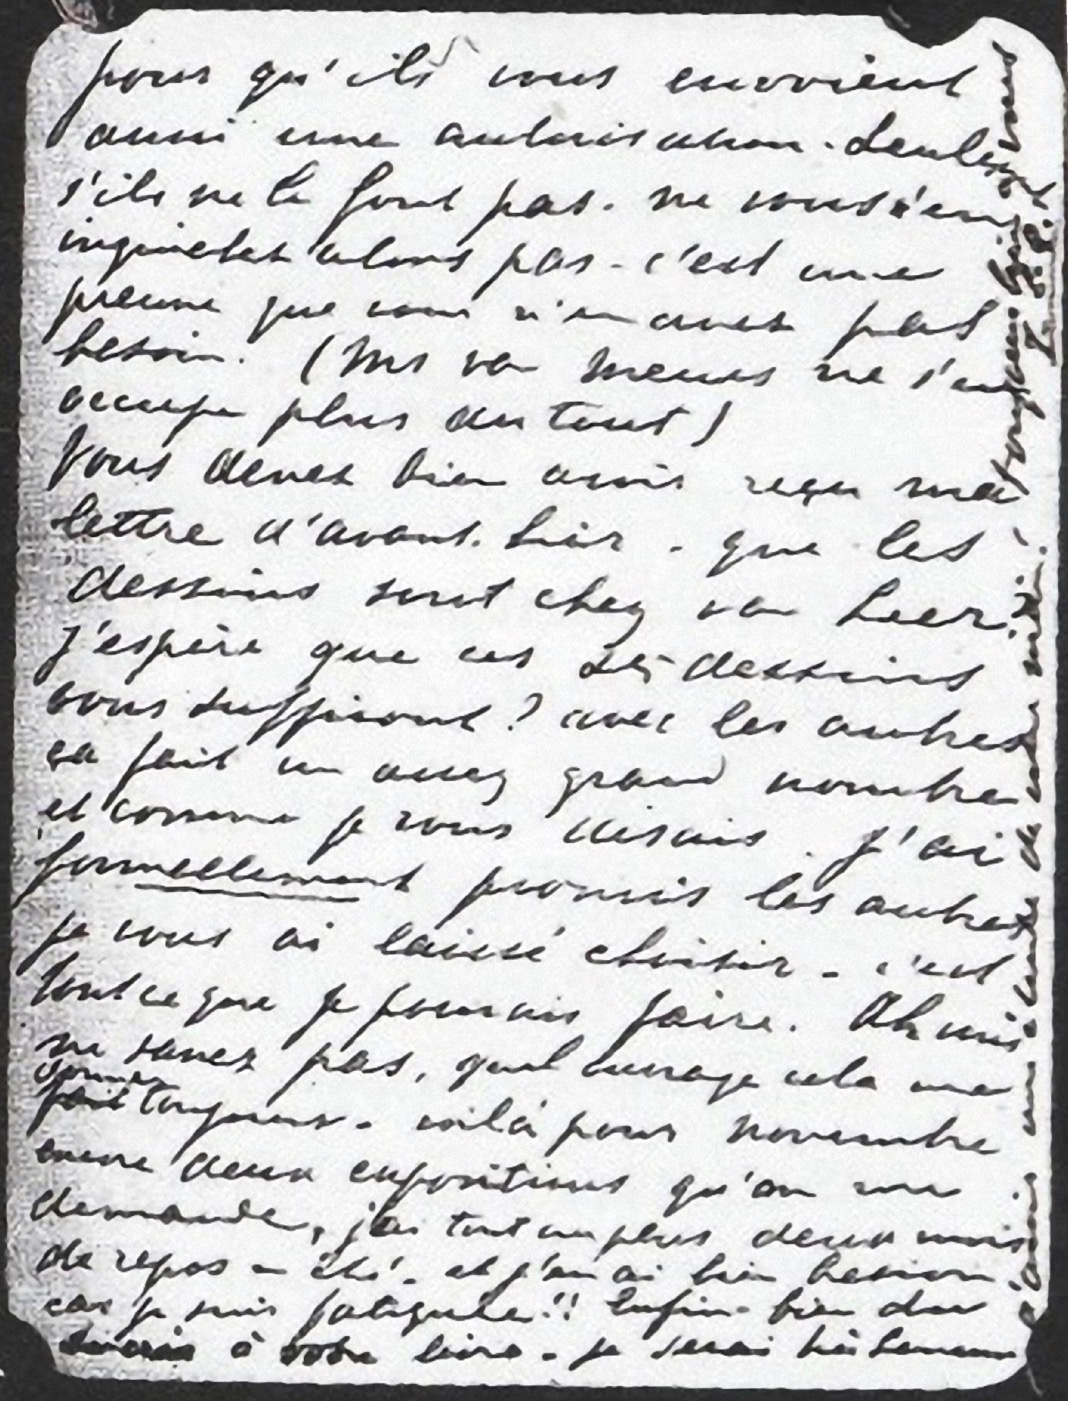 pour qu'ils vous envoient
aussi une autorisation. Seulement
s'ils ne le font pas. ne vous en
inquietez alors pas - c'est une
preuve que vous n'en avez pas
besoin. (Mr van Meurs ne s'en
occupe plus du tout)
Vous devez bien avoir reçu ma
lettre d'avant-hier - que les
dessins sont chez van Leer?
J'espère que ces dessins
vous suffiront? avec les autres
ça fait un assez grand nombre
et comme je vous disais. J'ai
formellement promis les autres
je vous ai laissé choisir - c'est
tout ce que je pouvais faire. Ah vous
ne savez pas, quel ouvrage cela me
donne toujours - voilà pour novembre
encore deux expositions qu'on me
demande, j'ai tout au plus deux mois
de repos en été - et j'en ai bien besoin
car je suis fatiguée!! Enfin - bien du
succès à votre livre - je serai très heureuse